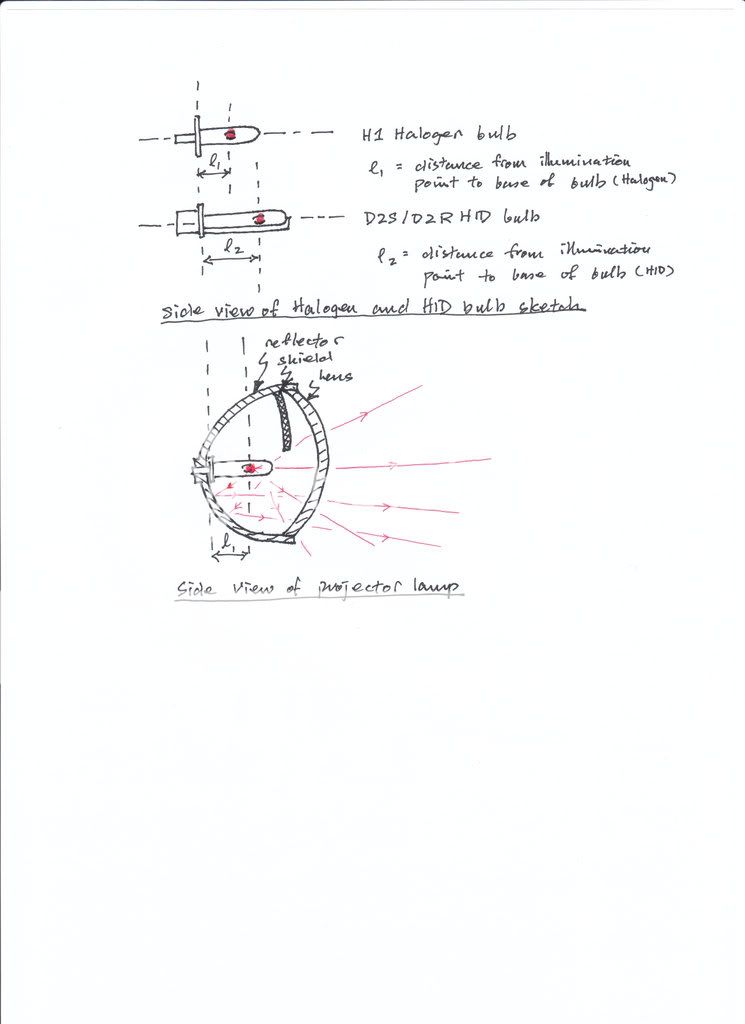 H1 Halogen bulb
l1 = distance from illumination
point to base of bulb (Halogen)
l1
D2S/D2R HID bulb
l2
l2 = distance from illumination
point to base of bulb (HID)
side view of Halogen and HID bulb sketch
reflector
shield
lens
l1
side view of projector lamp